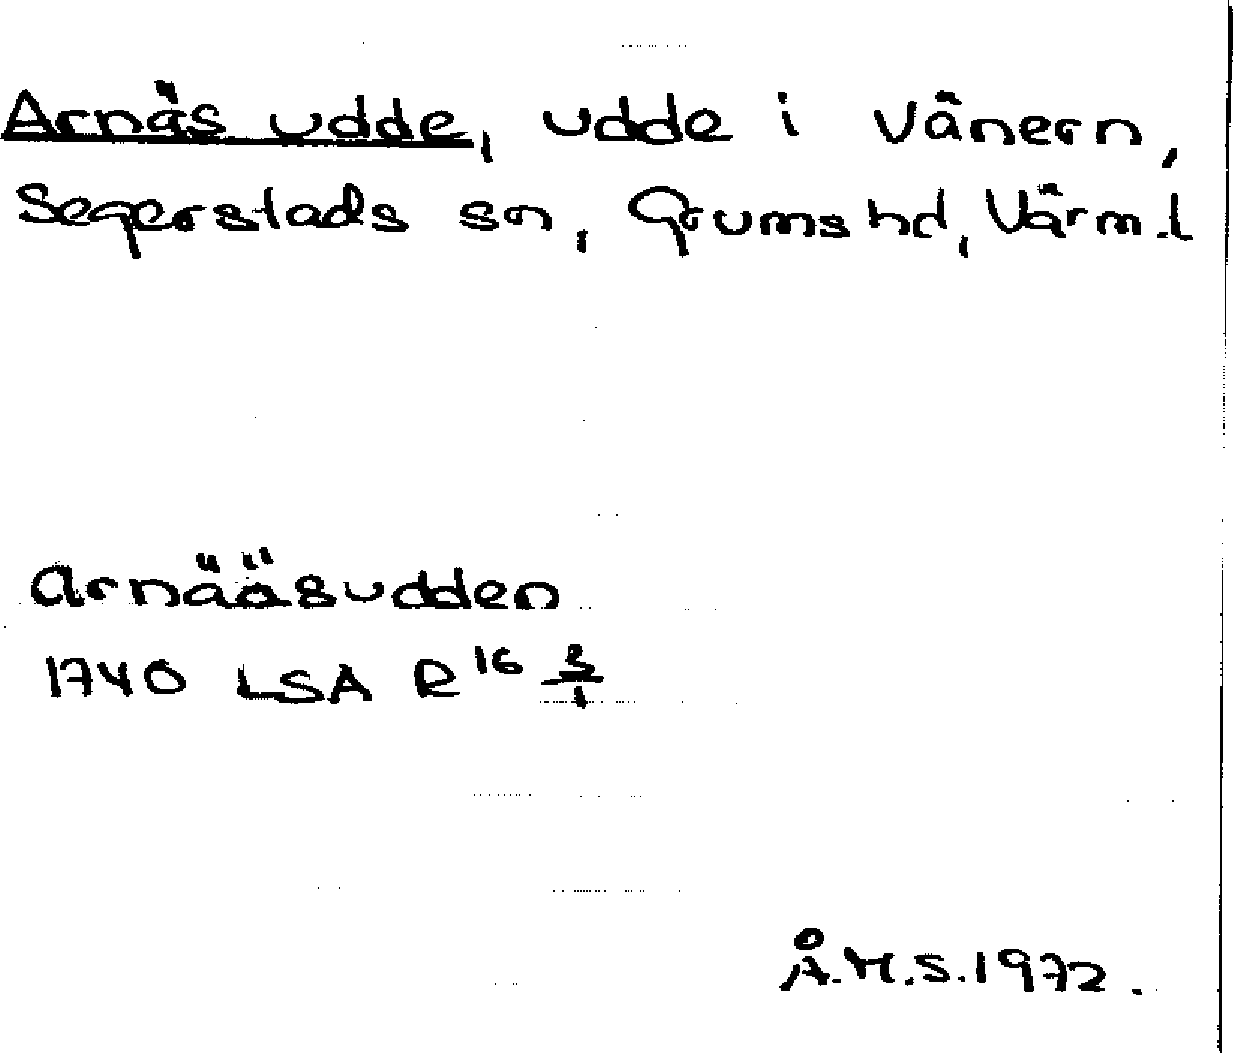 Arnäs udde, udde i Vänern,
Segerstads sn, Grums hd, Värml
Arnääsudden
1740 LSA R16 3/1
Å.H.S. 1972.